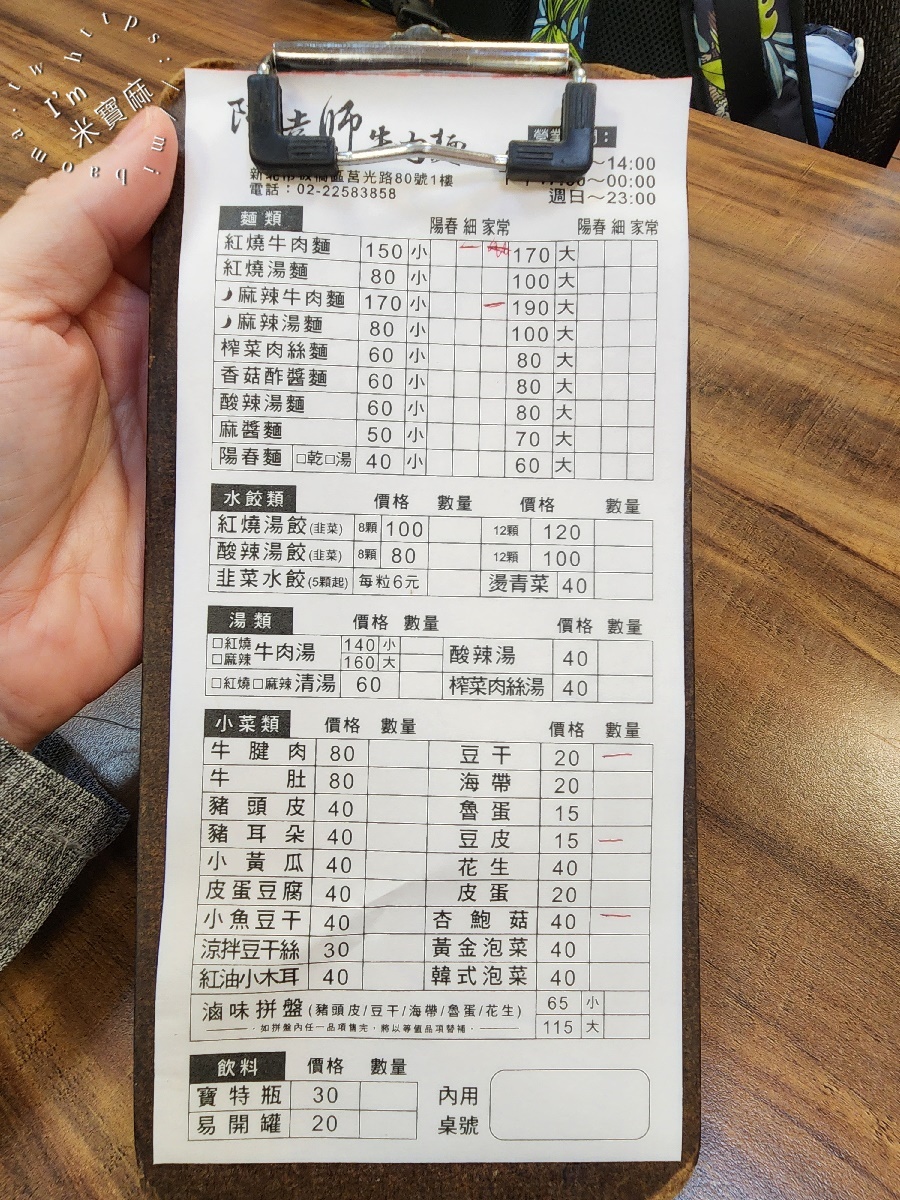 I'm
米寶麻
師牛肉麵
～14:00
～00:00
週日～23:00
新北市板橋區莒光路80號1樓
電話：02-22583858
麵類 陽春 細 家常 陽春 細 家常
紅燒牛肉麵 150 小 170 大
紅燒湯麵 80 小 100 大
麻辣牛肉麵 170 小 190 大
麻辣湯麵 80 小 100 大
榨菜肉絲麵 60 小 80 大
香菇酢醬麵 60 小 80 大
酸辣湯麵 60 小 80 大
麻醬麵 50 小 70 大
陽春麵 □乾□湯 40 小 60 大
水餃類 價格 數量 價格 數量
紅燒湯餃(韭菜) 8顆 100 12顆 120
酸辣湯餃(韭菜) 8顆 80 12顆 100
韭菜水餃(5顆起) 每粒6元 燙青菜 40
湯類 價格 數量 價格 數量
□紅燒 □麻辣 牛肉湯 140 小 160 大 酸辣湯 40
□紅燒□麻辣 清湯 60 榨菜肉絲湯 40
小菜類 價格 數量 價格 數量
牛腱肉 80 豆干 20
牛肚 80 海帶 20
豬頭皮 40 魯蛋 15
豬耳朵 40 豆皮 15
小黃瓜 40 花生 40
皮蛋豆腐 40 皮蛋 20
小魚豆干 40 杏鮑菇 40
涼拌豆干絲 30 黃金泡菜 40
紅油小木耳 40 韓式泡菜 40
滷味拼盤(豬頭皮/豆干/海帶/魯蛋/花生) 65 小
·如拼盤內任一品項售完，將以等值品項替補· 115 大
飲料 價格 數量
寶特瓶 30 內用
易開罐 20 桌號